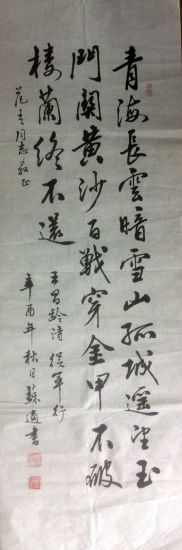 青海長雲暗雪山孤城遥望玉
門關黃沙百戰穿金甲不破
樓蘭終不還
同志教正
王昌齡詩從軍行
辛酉年秋日蘇適書